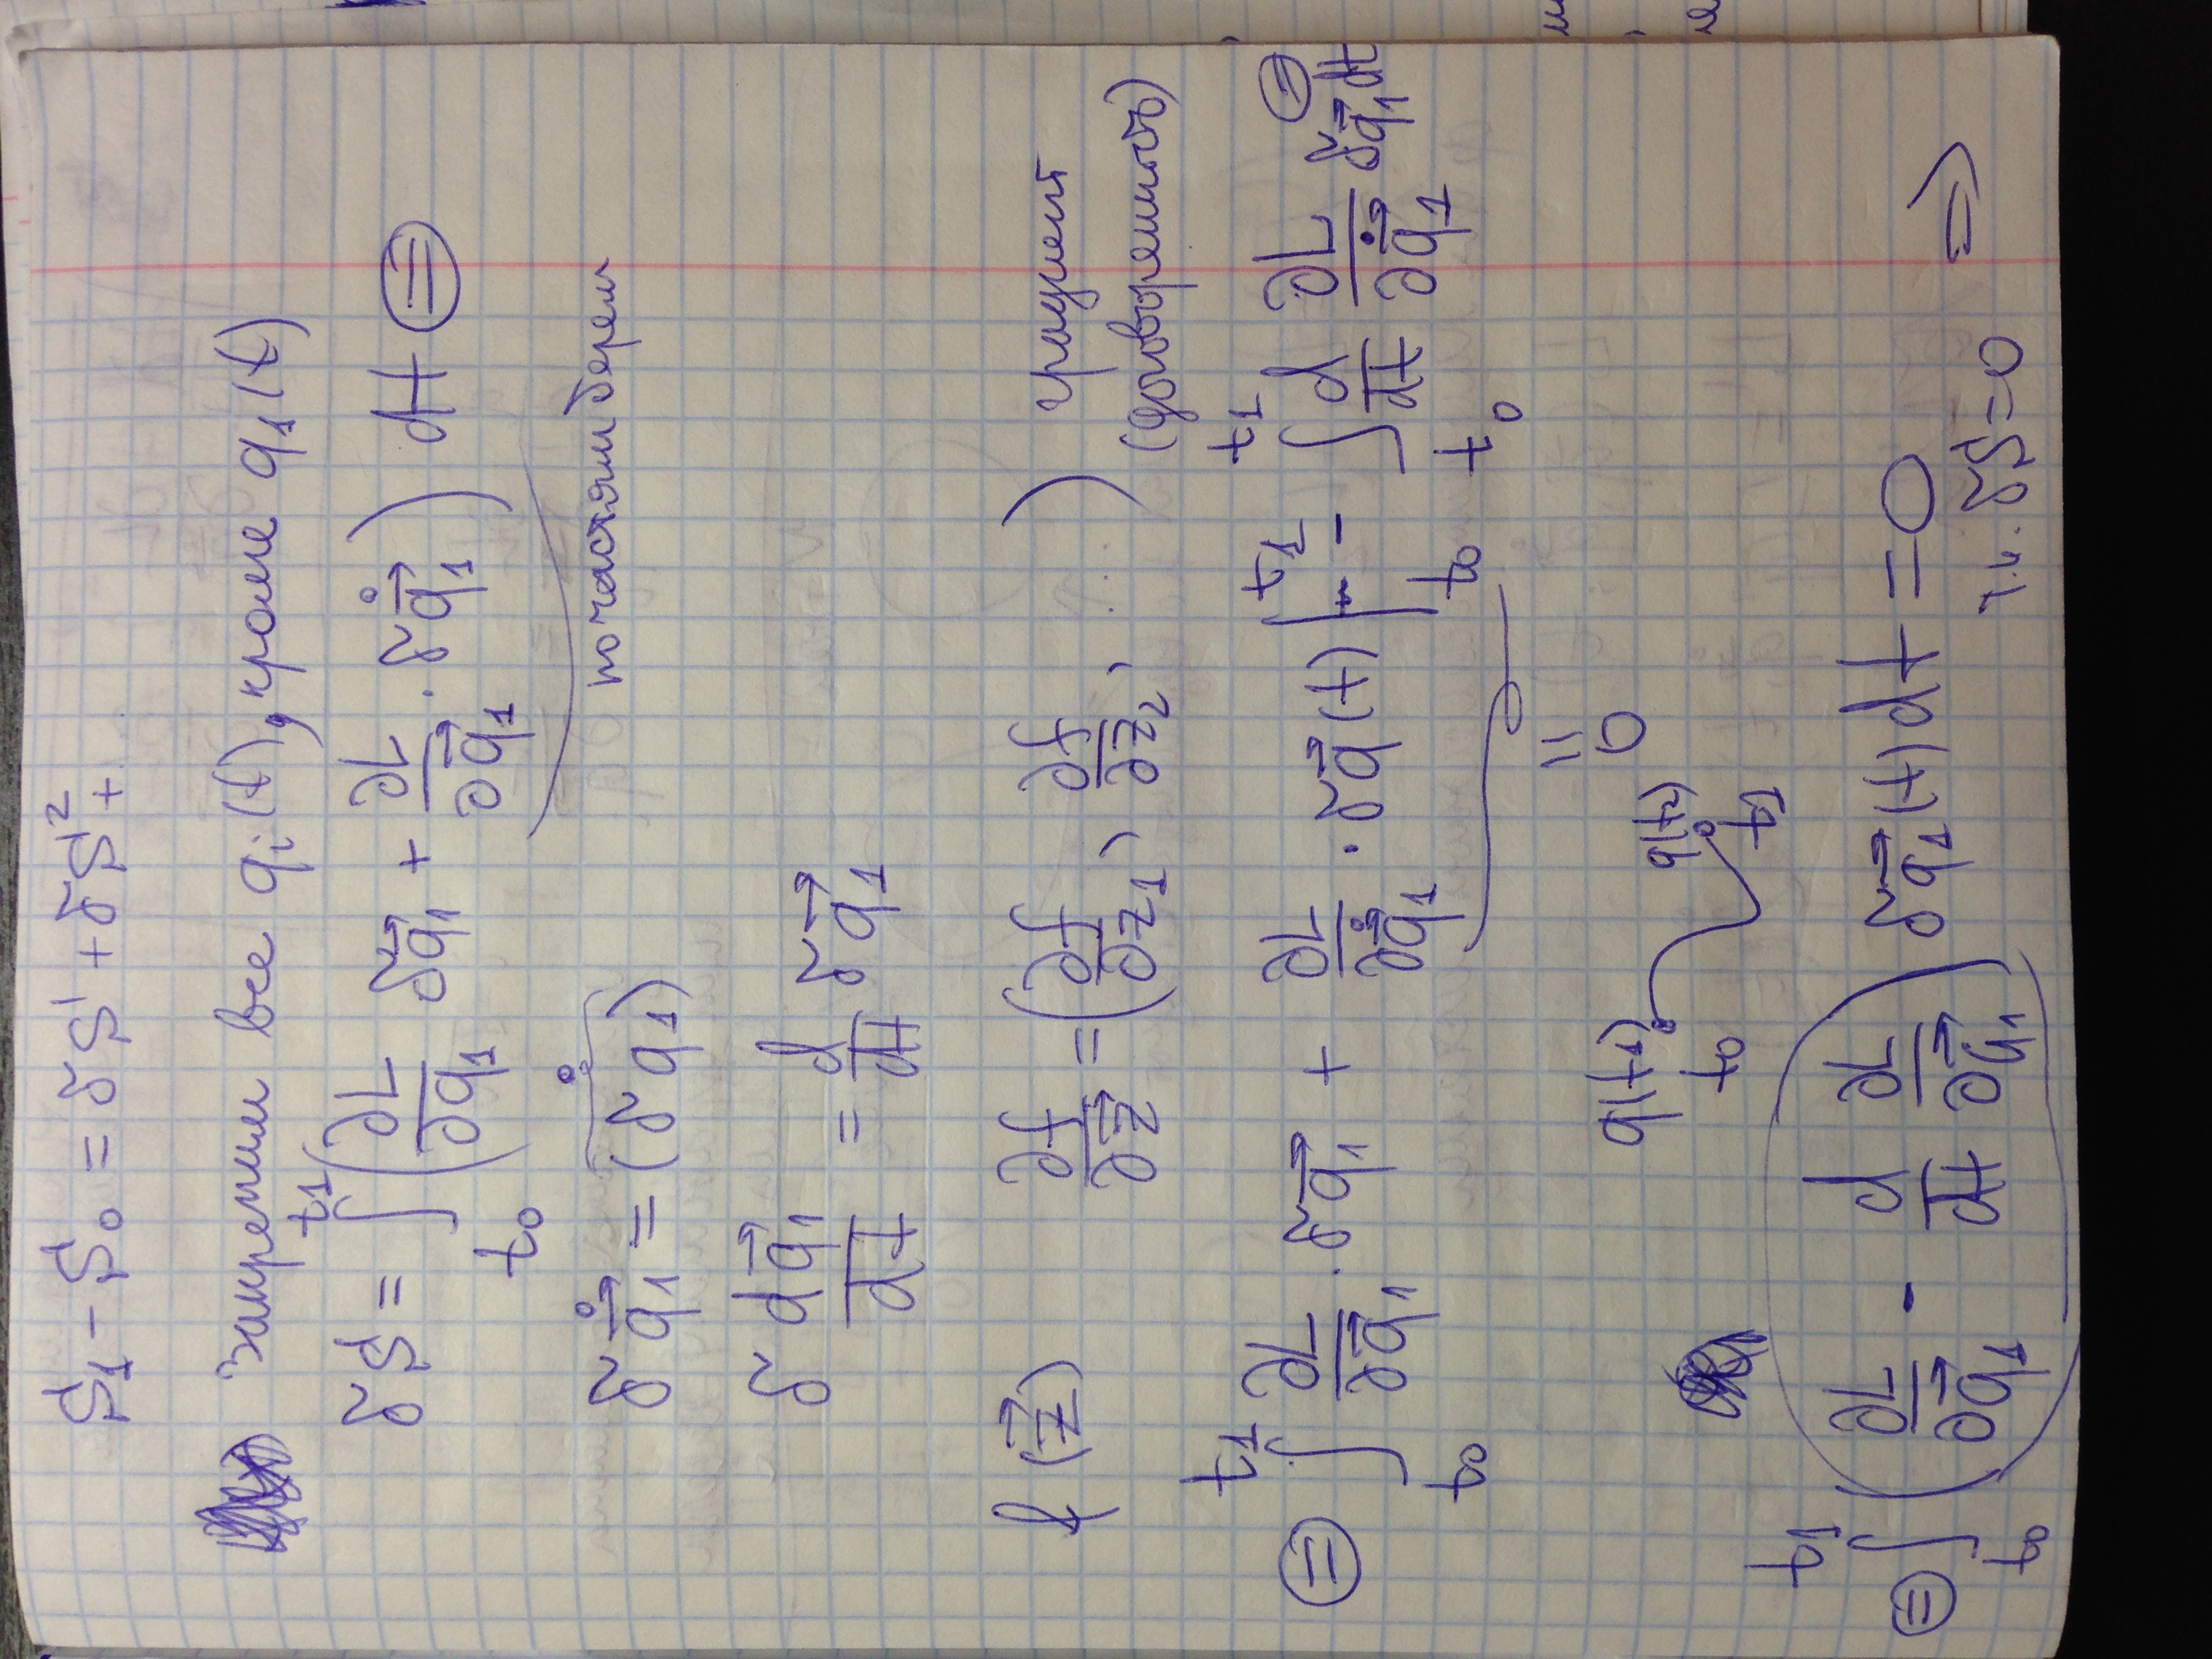 S₁ - S₀ = δS¹ + δS² + ...
Закрепим все qᵢ(t), кроме q₁(t)
δS = ∫_{t₀}^{t₁} (∂L/∂q⃗₁ δq⃗₁ + ∂L/∂q⃗₁ · δq⃗̇₁) dt ⊜
по частям берем
δq⃗̇₁ = (δq₁)˙
δ dq⃗₁/dt = d/dt δq⃗₁
f(z⃗) ∂f/∂z⃗ = (∂f/∂z₁, ∂f/∂z₂, ...) градиент
(договоренность)
⊜ ∫_{t₀}^{t₁} ∂L/∂q⃗₁ · δq⃗₁ + ∂L/∂q⃗̇₁ · δq⃗(t) |_{t₀}^{t₁} - ∫_{t₀}^{t₁} d/dt ∂L/∂q⃗̇₁ δq⃗₁dt ⊜
= 0
q(t₁) q(t₂)
t₀ t₁
⊜ ∫_{t₀}^{t₁} (∂L/∂q⃗₁ - d/dt ∂L/∂q⃗₁) δq⃗₁(t)dt = 0 ⇒
т.к. δS=0